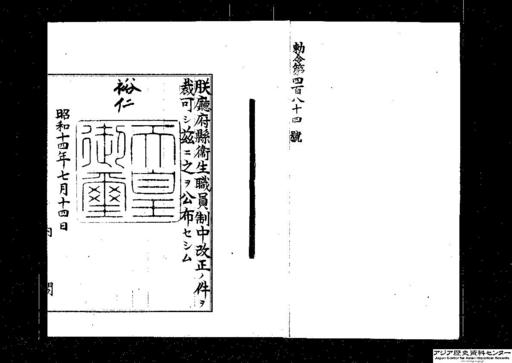 勅令第四百八十四號
朕廳府縣衞生職員制中改正ノ件ヲ
裁可シ茲ニ之ヲ公布セシム
裕仁
天皇
御璽
昭和十四年七月十四日
アジア歴史資料センター
Japan Center for Asian Historical Records